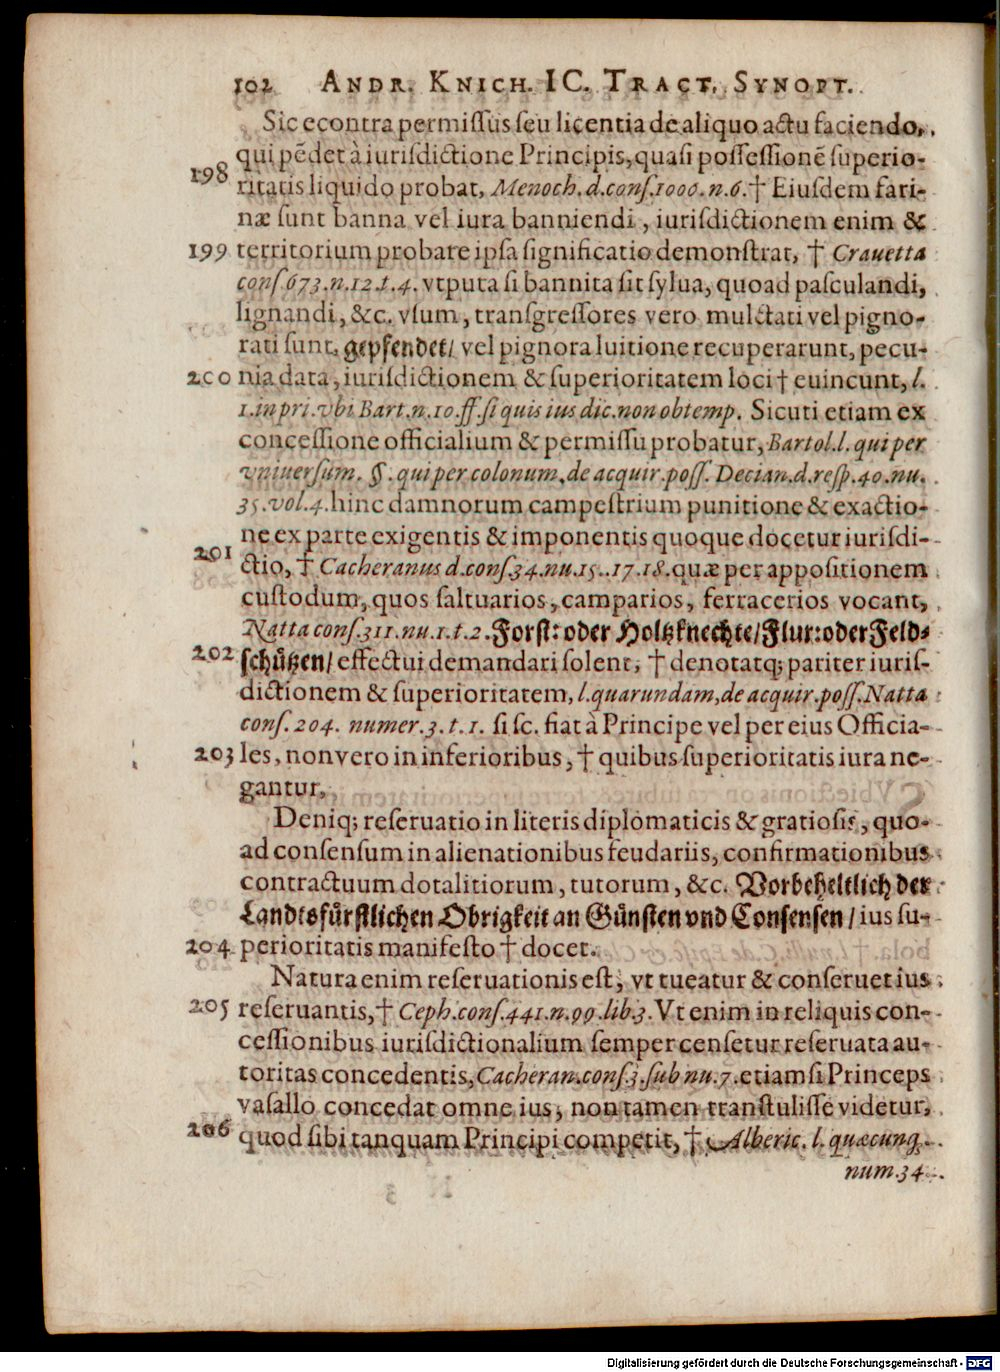 102 ANDR. KNICH. IC. TRACT. SYNOPT.
Sic econtra permiſſus ſeu licentia de aliquo actu faciendo,
qui pẽdet à iuriſdictione Principis, quaſi poſſeſſionẽ ſuperio-
198 ritatis liquido probat, Menoch. d. conſ. 1000. n. 6. † Eiuſdem fari-
næ ſunt banna vel iura banniendi, iuriſdictionem enim &
199 territorium probare ipſa ſignificatio demonſtrat, † Crauetta
conſ. 673. n. 12. t. 4. vtputa ſi bannita ſit ſylua, quoad paſculandi,
lignandi, &c. vſum, transgreſſores vero mulctati vel pigno-
rati ſunt, gepfendet/ vel pignora luitione recuperarunt, pecu-
200 nia data, iuriſdictionem & ſuperioritatem loci † euincunt, l.
1. in pri. vbi Bart. n. 10. ff. ſi quis ius dic. non obtemp. Sicuti etiam ex
conceſſione officialium & permiſſu probatur, Bartol. l. qui per
vniuerſum. §. qui per colonum, de acquir. poſſ. Decian. d. reſp. 40. nu.
35. vol. 4. hinc damnorum campeſtrium punitione & exactio-
ne ex parte exigentis & imponentis quoque docetur iuriſdi-
201 ctio, † Cacheranus d. conſ. 34. nu. 15. .17. 18. quæ per appoſitionem
cuſtodum, quos ſaltuarios, camparios, ferracerios vocant,
Natta conſ. 311. nu. 1. t. 2. Forſt: oder Holtzknechte/ Flur: oder Feld-
202 ſchützen/ effectui demandari ſolent, † denotatq; pariter iuriſ-
dictionem & ſuperioritatem, l. quarundam, de acquir. poſſ. Natta
conſ. 204. numer. 3. t. 1. ſi ſc. fiat à Principe vel per eius Officia-
203 les, non vero in inferioribus, † quibus ſuperioritatis iura ne-
gantur.
Deniq; reſeruatio in literis diplomaticis & gratioſis, quo-
ad conſenſum in alienationibus feudariis, confirmationibus
contractuum dotalitiorum, tutorum, &c. Vorbeheltlich der
Landtsfürſtlichen Obrigkeit an Günſten vnd Conſenſen/ ius ſu-
204 perioritatis manifeſto † docet.
Natura enim reſeruationis eſt, vt tueatur & conſeruet ius
205 reſeruantis, † Ceph. conſ. 441. n. 99. lib. 3. Vt enim in reliquis con-
ceſſionibus iuriſdictionalium ſemper cenſetur reſeruata au-
toritas concedentis, Cacheran. conſ. 3. ſub nu. 7. etiamſi Princeps
vaſallo concedat omne ius, non tamen tranſtuliſſe videtur,
206 quod ſibi tanquam Principi competit, † Alberic. l. quæcunq.
num. 34.
Digitalisierung gefördert durch die Deutsche Forschungsgemeinschaft - DFG